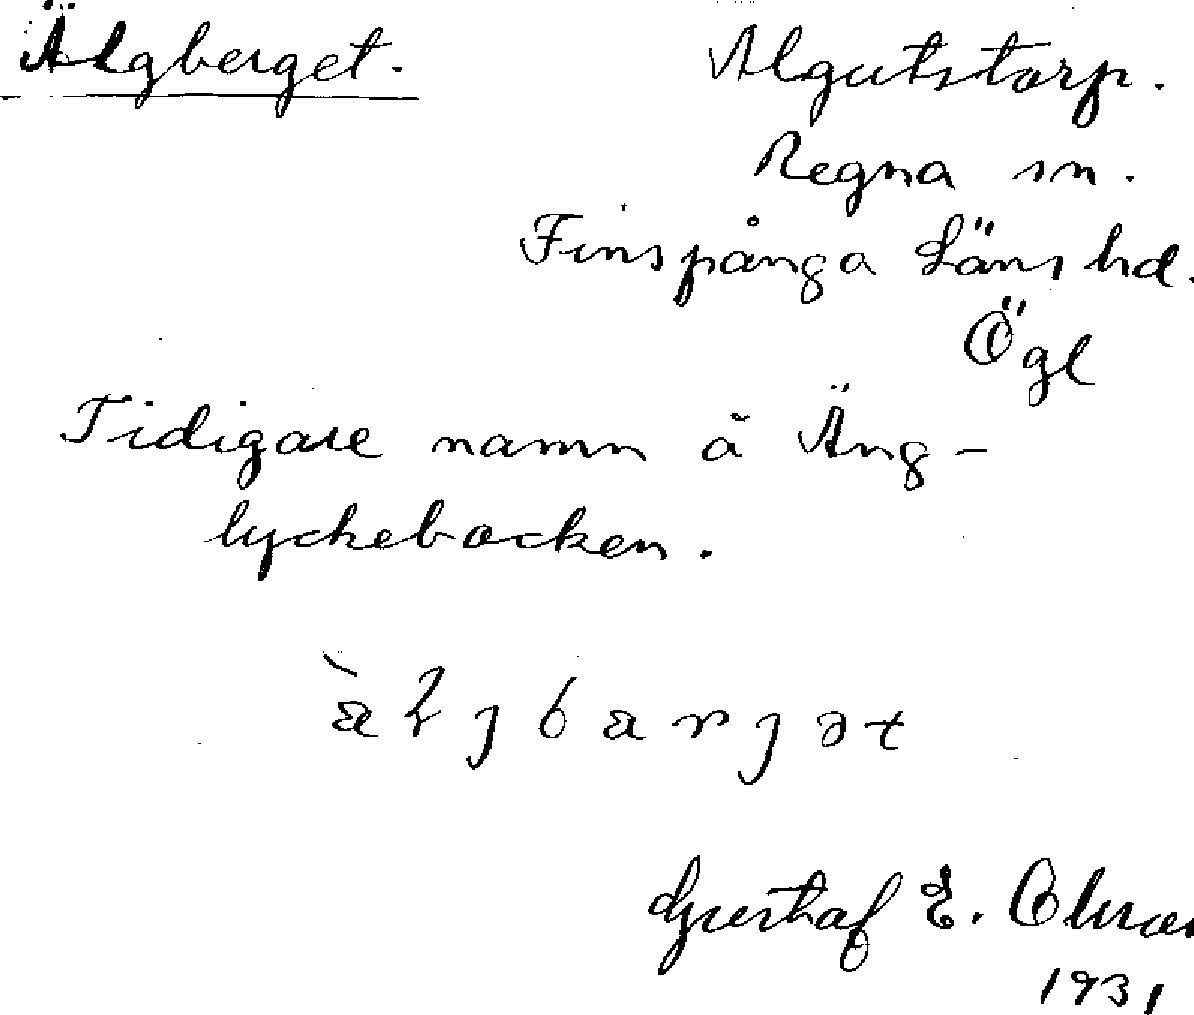 Älgberget.
Algutstorp.
Regna sn.
Finspånga Läns hd.
Ögl
Tidigare namn å Äng-
lyckebacken.
Gustaf E. Olsson
1931